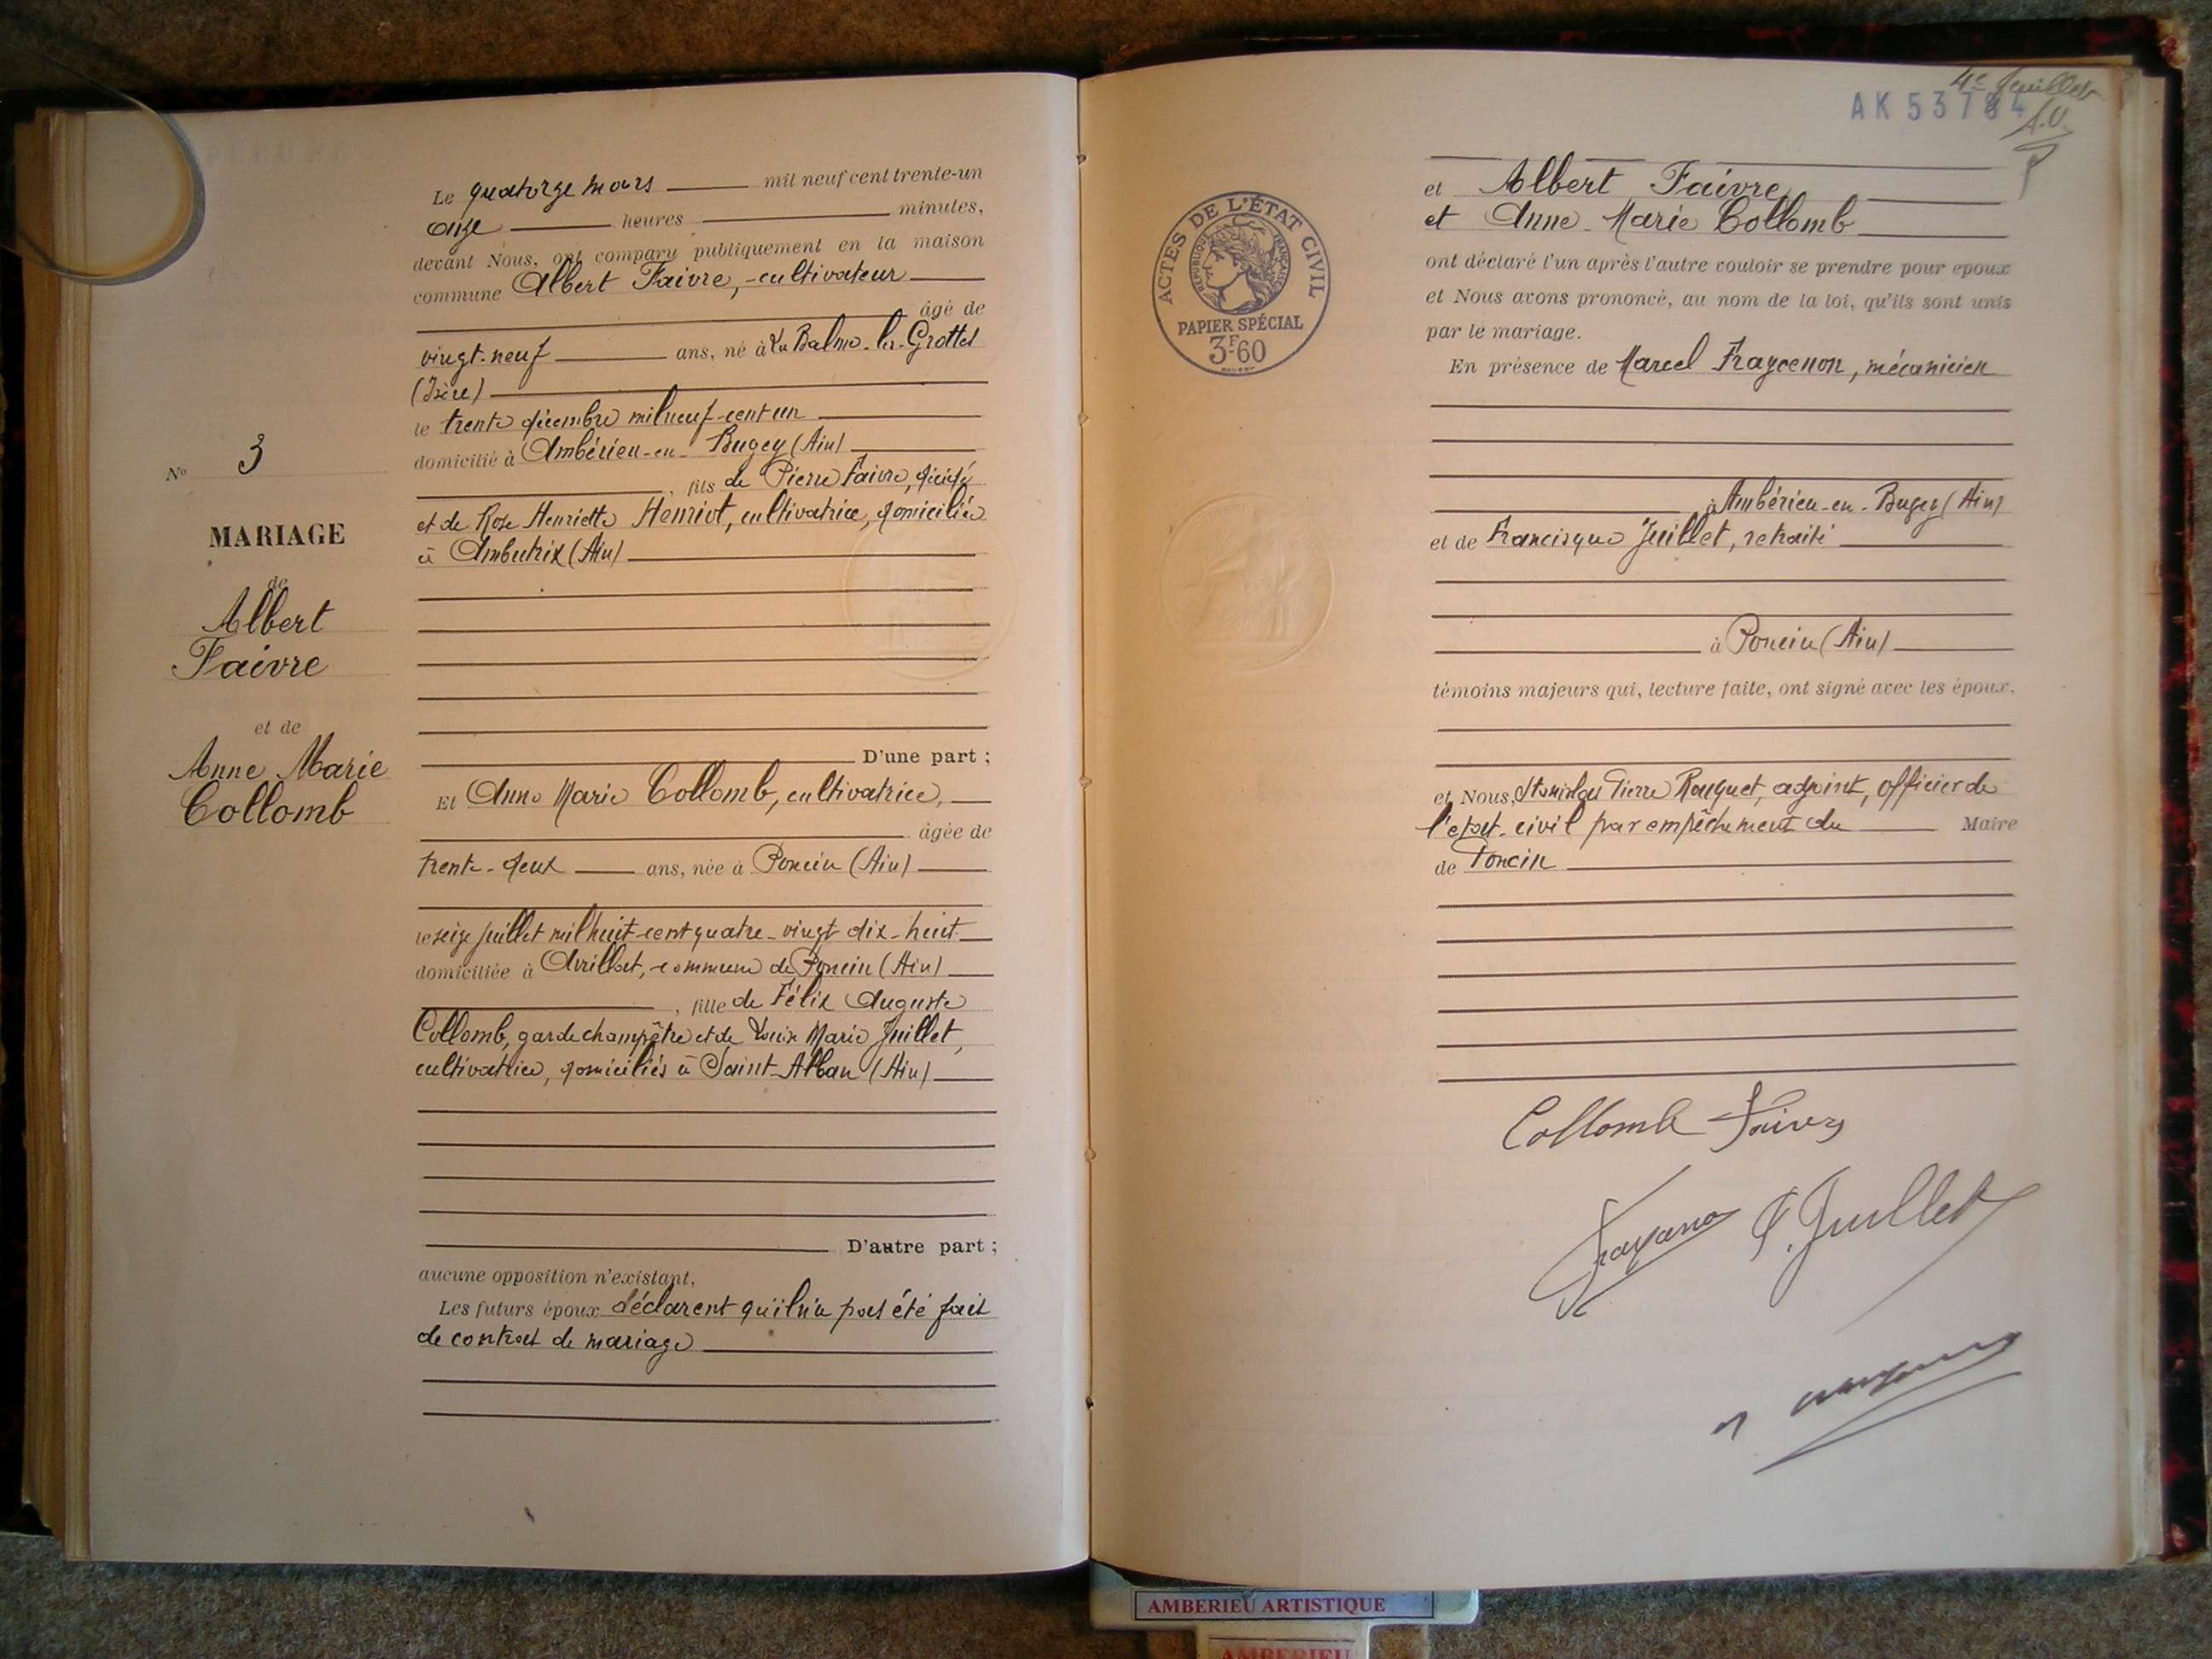 Le quatorze mars mil neuf cent trente-un
onze heures minutes,
devant Nous, ont comparu publiquement en la maison
commune Albert Faivre, cultivateur
âgé de
vingt-neuf ans, né à La Balme-les-Grottes
(Isère)
le trente décembre mil neuf-cent un
domicilié à Ambérieu-en-Bugey (Ain)
, fils de Pierre Faivre, décédé
et de Rose Henriette Henriot, cultivatrice, domiciliée
à Ambutrix (Ain)
D'une part ;
Et Anne Marie Collomb, cultivatrice,
âgée de
trente-deux ans, née à Poncin (Ain)
le seize juillet mil huit-cent quatre-vingt dix-huit
domiciliée à Avrillat, commune de Poncin (Ain)
, fille de Félix Auguste
Collomb, garde champêtre et de Marie Juillet,
cultivatrice, domiciliés à Saint-Alban (Ain)
D'autre part ;
aucune opposition n'existant.
Les futurs époux déclarent qu'il n'a pas été fait
de contrat de mariage
N° 3
MARIAGE
de
Albert
Faivre
et de
Anne Marie
Collomb
4e feuillet
AK 53784
ACTES DE L'ÉTAT CIVIL
RÉPUBLIQUE FRANÇAISE
PAPIER SPÉCIAL
3F-60
et Albert Faivre
et Anne-Marie Collomb
ont déclaré l'un après l'autre vouloir se prendre pour époux
et Nous avons prononcé, au nom de la loi, qu'ils sont unis
par le mariage.
En présence de Marcel , mécanicien
à Ambérieu-en-Bugey (Ain)
et de Francisque Juillet, retraité
à Poncin (Ain)
témoins majeurs qui, lecture faite, ont signé avec les époux.
et Nous, Stanislas Pierre Rouquet, adjoint, officier de
l'état-civil par empêchement du Maire
de Poncin
Collomb Faivre
F. Juillet
AMBERIEU ARTISTIQUE
AMBERIEU